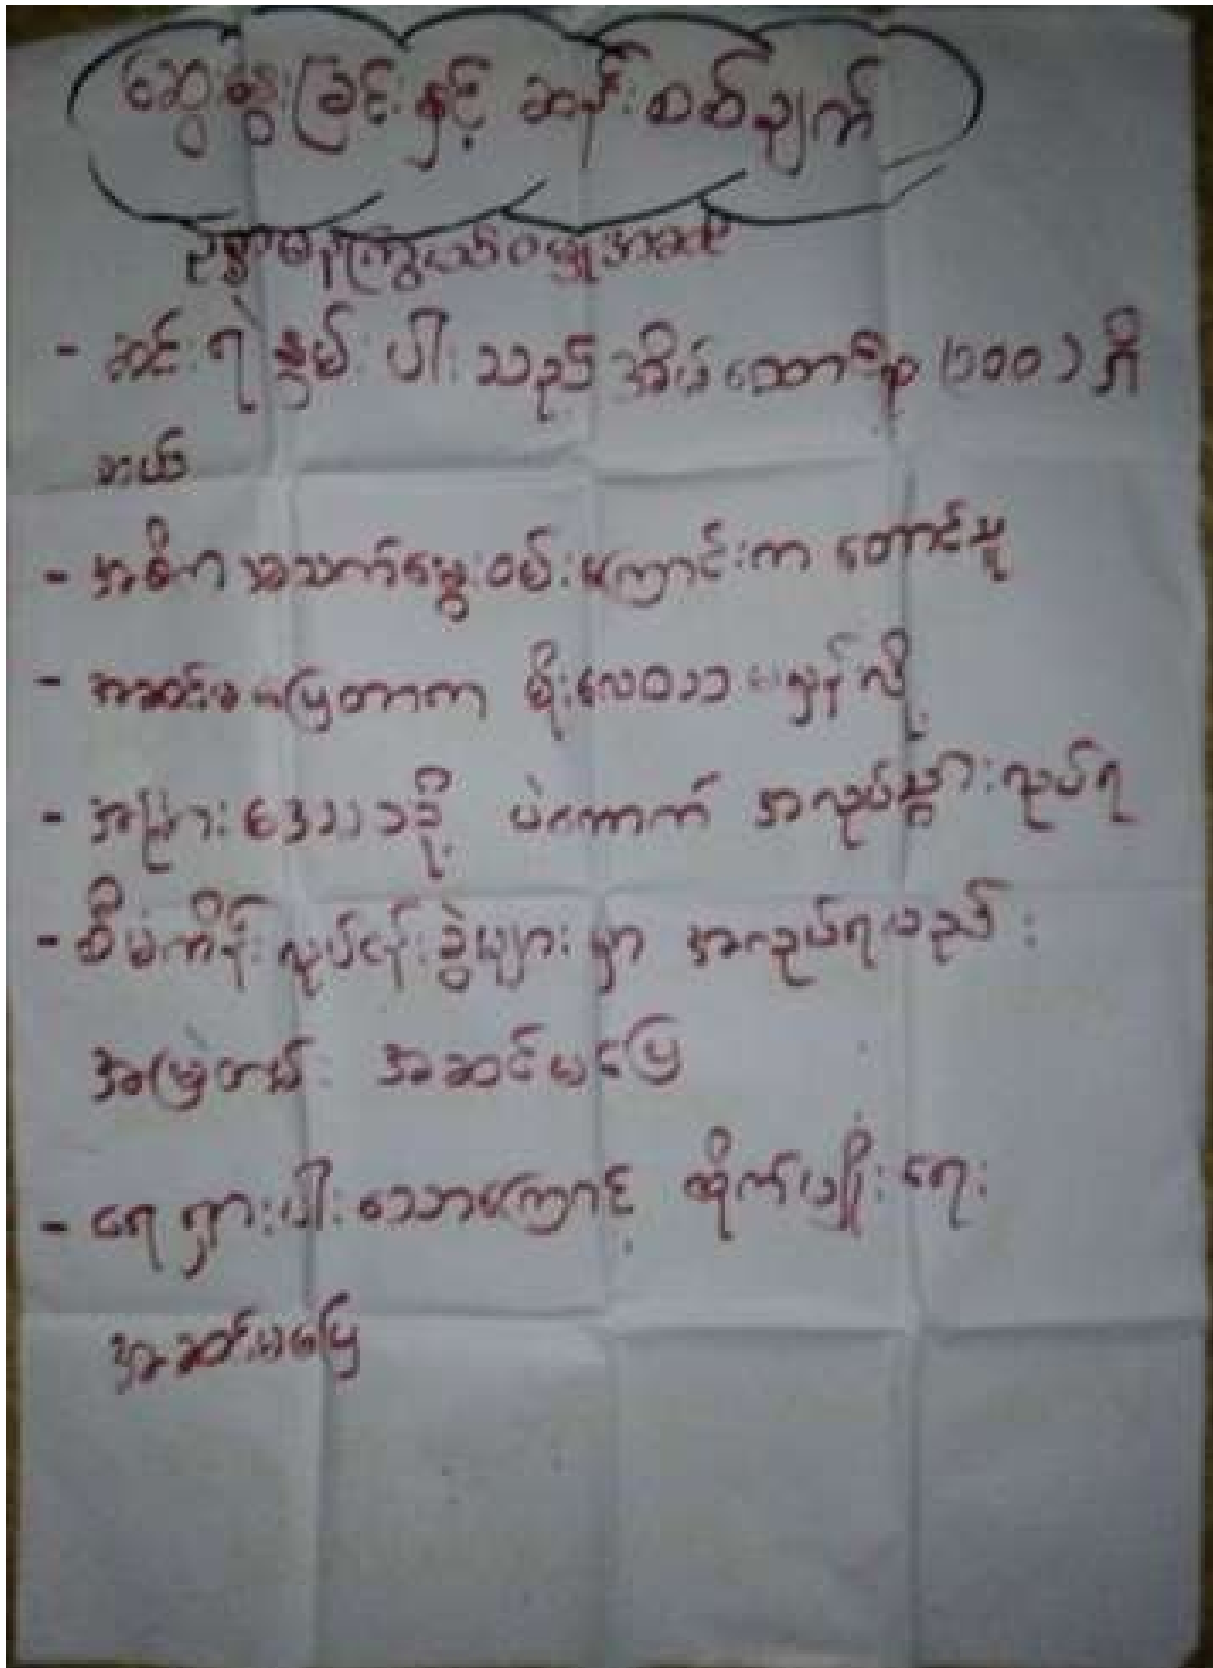 ဆွေးနွေးခြင်းနှင့် ဆန်းစစ်ချက်
ဥစ္စာဓနကြွယ်ဝမှုအဆင့်
- ဆင်းရဲ နွမ်းပါးသည့် အိမ်ထောင်စု (၁၀၀) ရှိ
တယ်
- အဓိက အသက်မွေးဝမ်းကြောင်းက တောင်သူ
- အဆင်မပြေတာက မိုးလေဝသ မမှန်လို့
- အခြားဒေသသို့ ပဲကောက် အလုပ်သွားလုပ်ရ
- စီမံကိန်း လုပ်ငန်းခွဲများ မှာ အလုပ်ရမည်း
အမြဲတမ်း အဆင်မပြေ
- ရေရှားပါးသောကြောင့် စိုက်ပျိုးရေး
အဆင်မပြေ